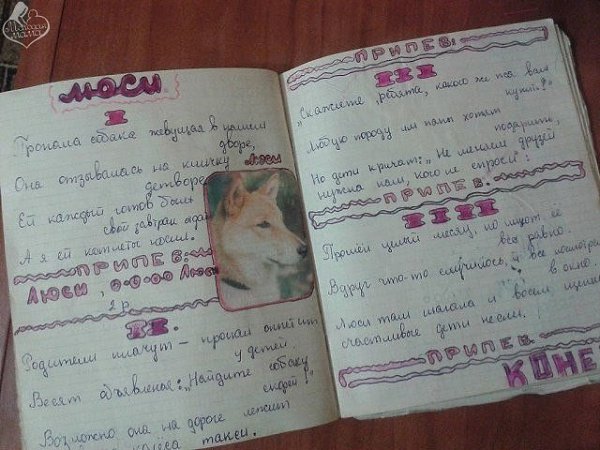 Меткая мама
ЛЮСИ
I
Пропала собака живущая в нашем
дворе,
Она отзывалась на кличку Люси
детворе
Ей каждый готов был
свой завтрак отдать
А я ей котлеты носил.
ПРИПЕВ:
Люси, о-о-оо Люси
2 р.
II.
Родители плачут – пропал аппетит
у детей.
Весят объявленья: "Найдите собаку
скорей!"
Возможно она на дороге лежит
колёса такси.
ПРИПЕВ:
III
"Скажите, ребята, какого же пса вам
купить?"
Любую породу им папы хотят
подарить,
Но дети кричат: "Не меняем друзей
нужна нам, кого не спроси":
ПРИПЕВ:
IIII
Прошёл целый месяц, но ищут её
все равно.
Вдруг что-то случилось, и все посмотре
в окно.
Люси там шагала и восем щенк
счастливые дети несли.
ПРИПЕВ
КОНЕ